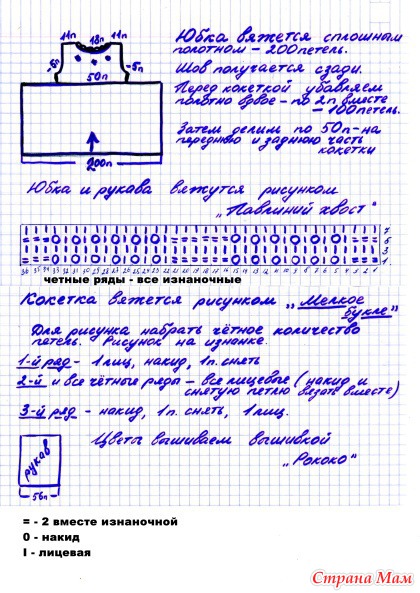 11п 18п 11п
-5п -5п
50п
200п
Юбка вяжется сплошным
полотном - 200 петель.
Шов получается сзади.
Перед кокеткой убавляем
полотно вдвое - по 2п вместе
- 100 петель.
Затем делим по 50п - на
переднюю и заднюю часть
кокетки
Юбка и рукава вяжутся рисунком
„Павлиний хвост"
7
5
3
1
четные ряды - все изнаночные
Кокетка вяжется рисунком „Мелкое
букле"
Для рисунка набрать чётное количество
петель. Рисунок на изнанке.
1-й ряд - 1 лиц, накид, 1п. снять
2-й и все чётные ряды - все лицевые (накид и
снятую петлю вязать вместе)
3-й ряд - накид, 1п. снять, 1 лиц.
рукав
56п
Цветы вышиваем вышивкой
„Рококо"
= - 2 вместе изнаночной
0 - накид
I - лицевая
Страна Мам